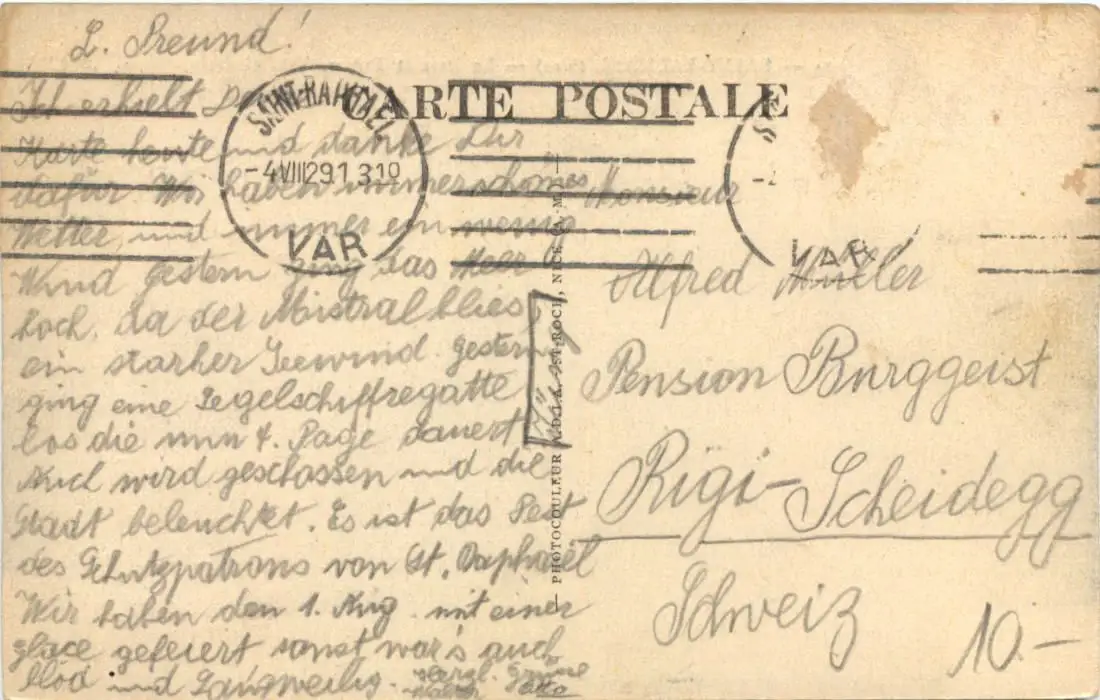 L. Freund!
Ich erhielt
Karte heute und danke Dir
dafür. Wir haben immer schönes
Wetter, und immer ein wenig
Wind gestern ging das Meer
hoch, da der Mistral blies,
ein starker Seewind. Gestern
ging eine Segelschiffregatte
los die nun 4. Tage dauert
Auch wird geschossen und die
Stadt beleuchtet. Es ist das Fest
des Schutzpatrons von St. Raphaël
Wir haben den 1. Aug. mit einer
glace gefeiert sonst war's auch
blöd und Langweilig. Herzl. Grüsse
CARTE POSTALE
SAINT-RAPHAEL
-4 VIII 29 1310
VAR
VAR
PHOTOCOULEUR NICE
Monsieur
Alfred Müller
Pension Burggeist
Rigi-Scheidegg
Schweiz
10.-